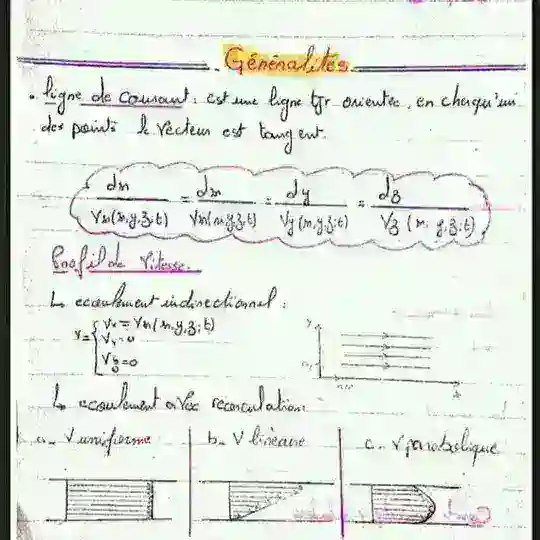 Généralités
. ligne de courant : est une ligne tjr orientée, en chaqu'un
des points le vecteur est tangent.
dx/Vx(x,y,z;t) = dx/Vx(x,y,z;t) = dy/Vy(x,y,z;t) = dz/Vz(x,y,z;t)
Profil de Vitesse.
↳ ecoulement indirectionnel :
V = { Vx = Vx(x,y,z;t)
Vy = 0
Vz = 0
y
x
↳ ecoulement avec recirculation:
a- V uniforme
b- V lineaire
c- V parabolique